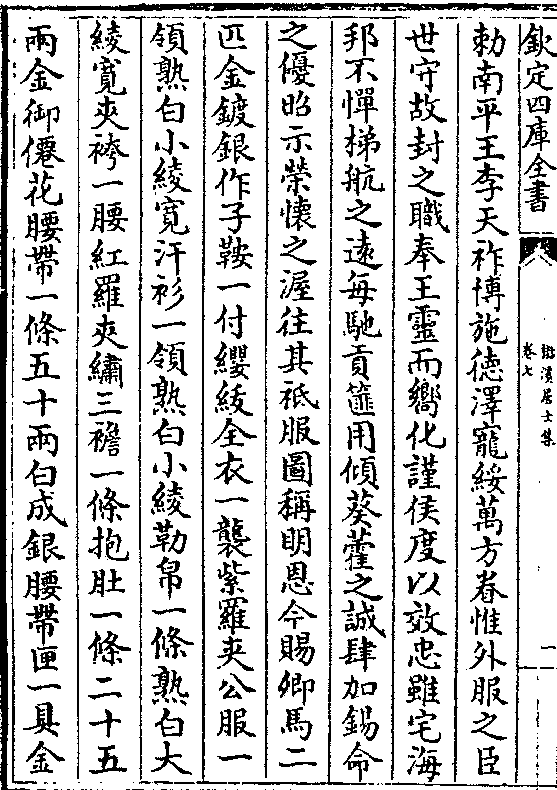 欽定四庫全書
筠溪居士集
卷七
一
勅南平王李天祚博施徳澤寵綏萬方眷惟外服之臣
世守故封之職奉王靈而嚮化謹侯度以效忠雖宅海
邦不憚梯航之遠每馳貢篚用傾葵藿之誠肆加錫命
之優昭示榮懷之渥往其祗服圖稱明恩今賜卿馬二
匹金鍍銀作子鞍一付纓紱全衣一襲紫羅夾公服一
領熟白小綾寛汗衫一領熟白小綾勒帛一條熟白大
綾寛夾袴一腰紅羅夾繡三襜一條抱肚一條二十五
兩金御僊花腰帶一條五十兩白成銀腰帶匣一具金